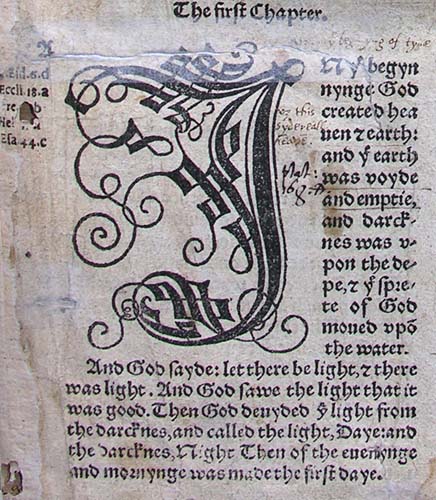 The first Chapter.
A
Eccli.18.a
Esa 44.c
IN yͤ begyn
nynge God
created hea
uen ⁊ earth:
and yͤ earth
was voyde
and emptie,
and darck-
nes was v-
pon the de-
pe, ⁊ yͤ spre-
te of God
moued vpō
the water.
And God sayde: let there be light, ⁊ there
was light. And God sawe the light that it
was good. Then God deuyded yͤ light from
the darcknes, and called the light, Daye: and
the darcknes, Night Then of the euenynge
and mornynge was made the first daye.